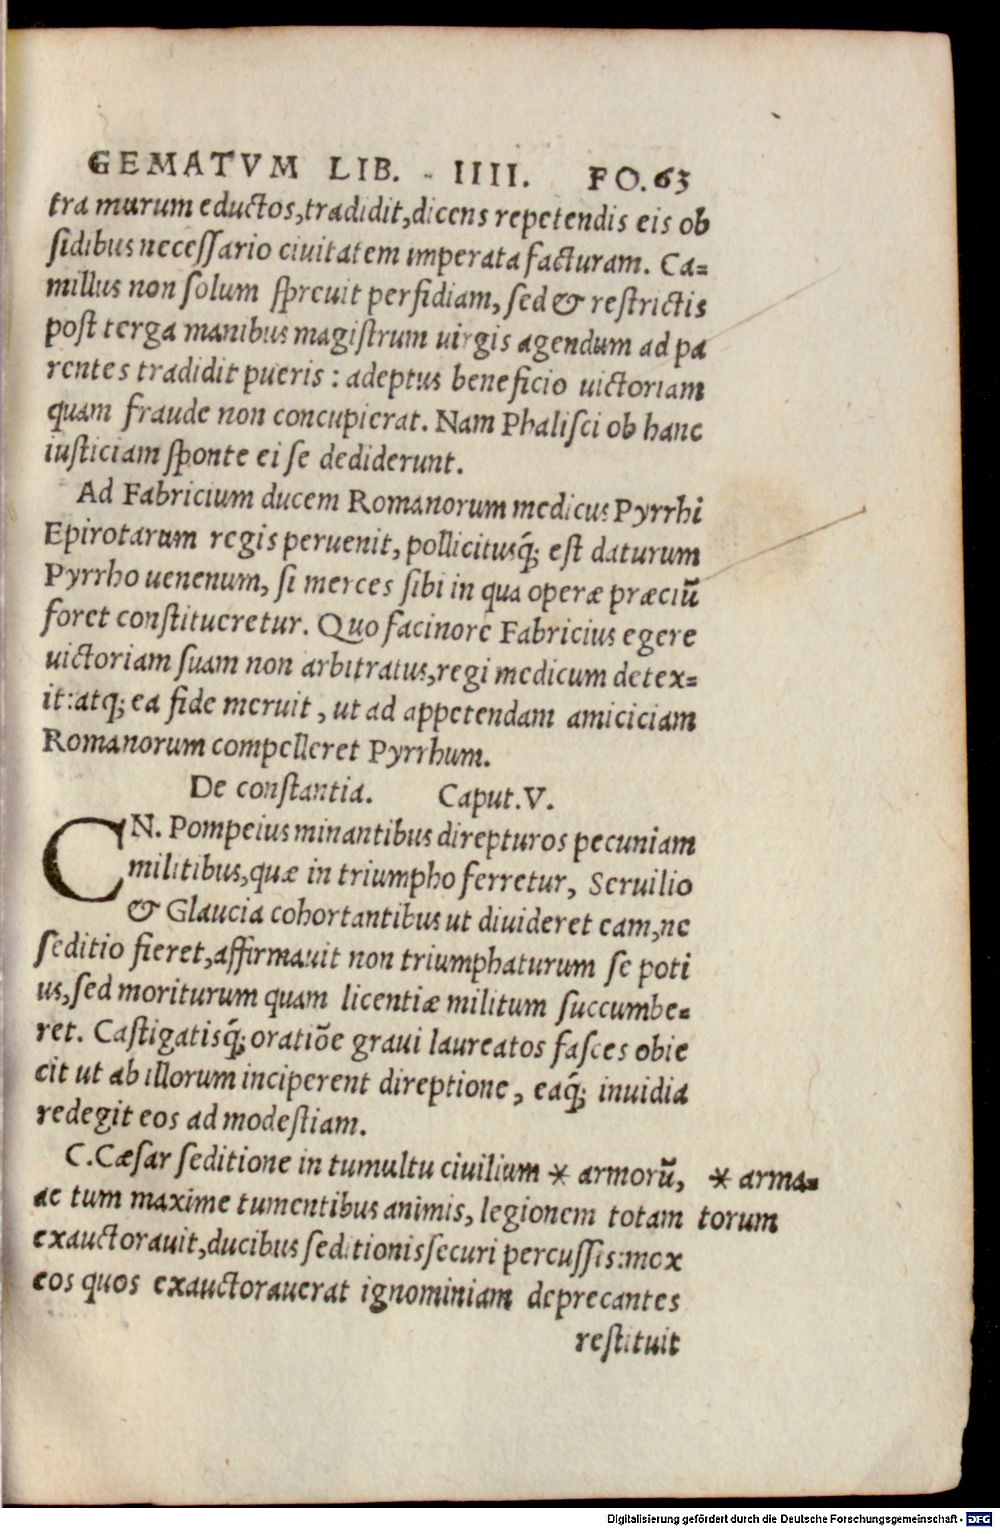 GEMATVM LIB. IIII. FO.63
tra murum eductos,tradidit,dicens repetendis eis ob
ſidibus neceſſario ciuitatem imperata facturam. Ca=
millus non ſolum ſpreuit perfidiam, ſed & reſtrictis
poſt terga manibus magiſtrum uirgis agendum ad pa
rentes tradidit pueris : adeptus beneficio uictoriam
quam fraude non concupierat. Nam Phaliſci ob hanc
iuſticiam ſponte ei ſe dediderunt.
Ad Fabricium ducem Romanorum medicus Pyrrhi
Epirotarum regis peruenit, pollicitusq́; eſt daturum
Pyrrho uenenum, ſi merces ſibi in qua operæ præciū
foret conſtitueretur. Quo facinore Fabricius egere
uictoriam ſuam non arbitratus,regi medicum detex=
it:atq; ea fide meruit , ut ad appetendam amiciciam
Romanorum compelleret Pyrrhum.
De conſtantia. Caput.V.
CN. Pompeius minantibus direpturos pecuniam
militibus,quæ in triumpho ferretur, Seruilio
& Glaucia cohortantibus ut diuideret eam,ne
ſeditio fieret,affirmauit non triumphaturum ſe poti
us,ſed moriturum quam licentiæ militum ſuccumbe=
ret. Caſtigatisq́; oratiōe graui laureatos faſces obie
cit ut ab illorum inciperent direptione , eaq́; inuidia
redegit eos ad modeſtiam.
C.Cæſar ſeditione in tumultu ciuilium * armorū, * arma=
ac tum maxime tumentibus animis, legionem totam torum
exauctorauit,ducibus ſeditionis ſecuri percuſſis:mox
eos quos exauctorauerat ignominiam deprecantes
reſtituit
Digitalisierung gefördert durch die Deutsche Forschungsgemeinschaft - DFG